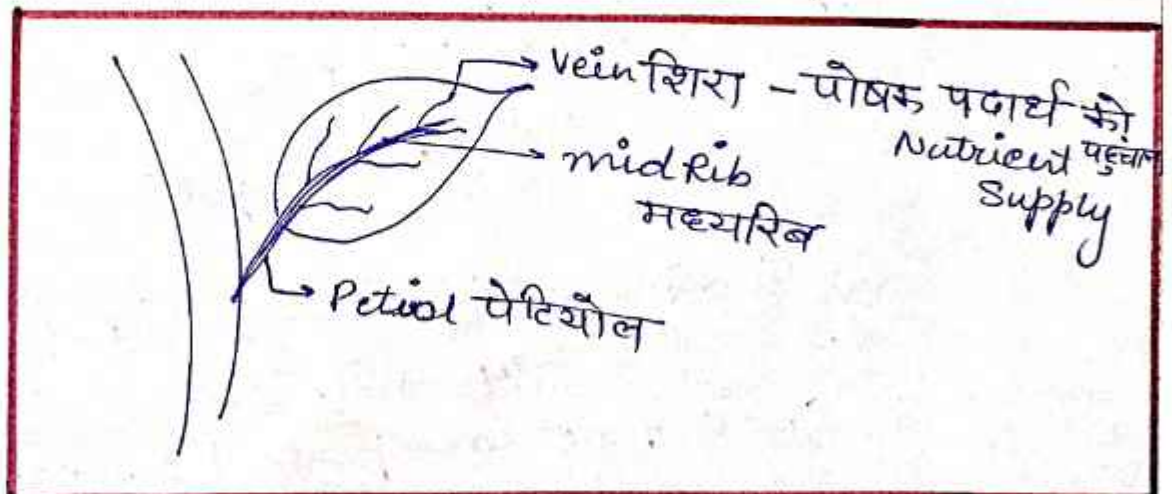 Vein शिरा - पोषक पदार्थ को पहुंचान
Nutrient Supply
mid Rib
मध्यरिब
Petiol पेटियोल